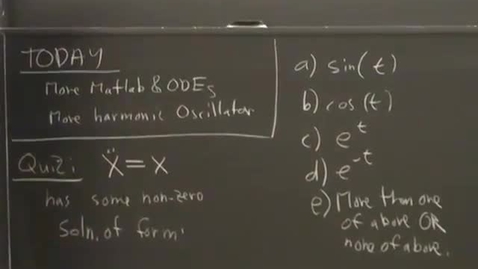 TODAY
More Matlab & ODEs
More harmonic Oscillator
Quiz: ẍ = x
has some non-zero
Soln. of form:
a) sin(t)
b) cos(t)
c) e^t
d) e^-t
e) More than one
of above OR
none of above.